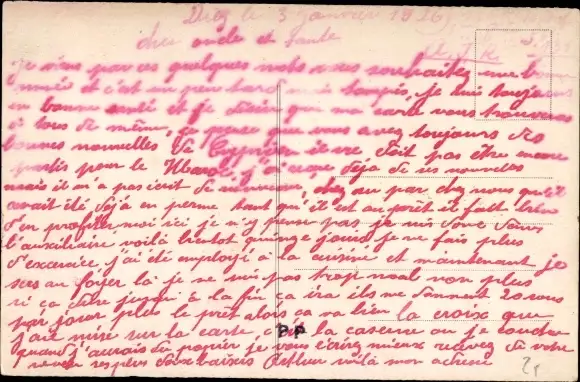 Diez le 3 janvier 1926
cher oncle et tante
je viens par ces quelques mots vous souhaitez une bonne
année et c'est un peu tard mais tempis, je suis toujours
en bonne santé et je désire que ma carte vous trouveras
si tous de même, je pense que vous avez toujours des
bonnes nouvelles de il ne doit pas être encore
partis pour le Maroc, j'ai déjà de ses nouvelles
mais il m'a pas écrit de chez eu par chez nous qu'il
avait été déjà en perme tant qu'il est au prêt il fait bien
d'en profiter moi ici je n'y pense pas je suis donc dans
l'auxiliaire voilà bientot quinze jours je ne fais plus
d'exercice j'ai été employé à la cuisine et maintenant je
sers au foyer là je ne suis pas trop mal non plus
si ça dure jusqu'à la fin ça ira ils me donnent 20 sous
par jour plus le prêt alors ça va bien la croix que
j'ai mise sur la carte c'est la caserne ou je couche
quand j'aurais du papier je vous écrirez mieux recevez de votre
neveu ses plus doux baisers Arthur voilà mon adresse
P.P